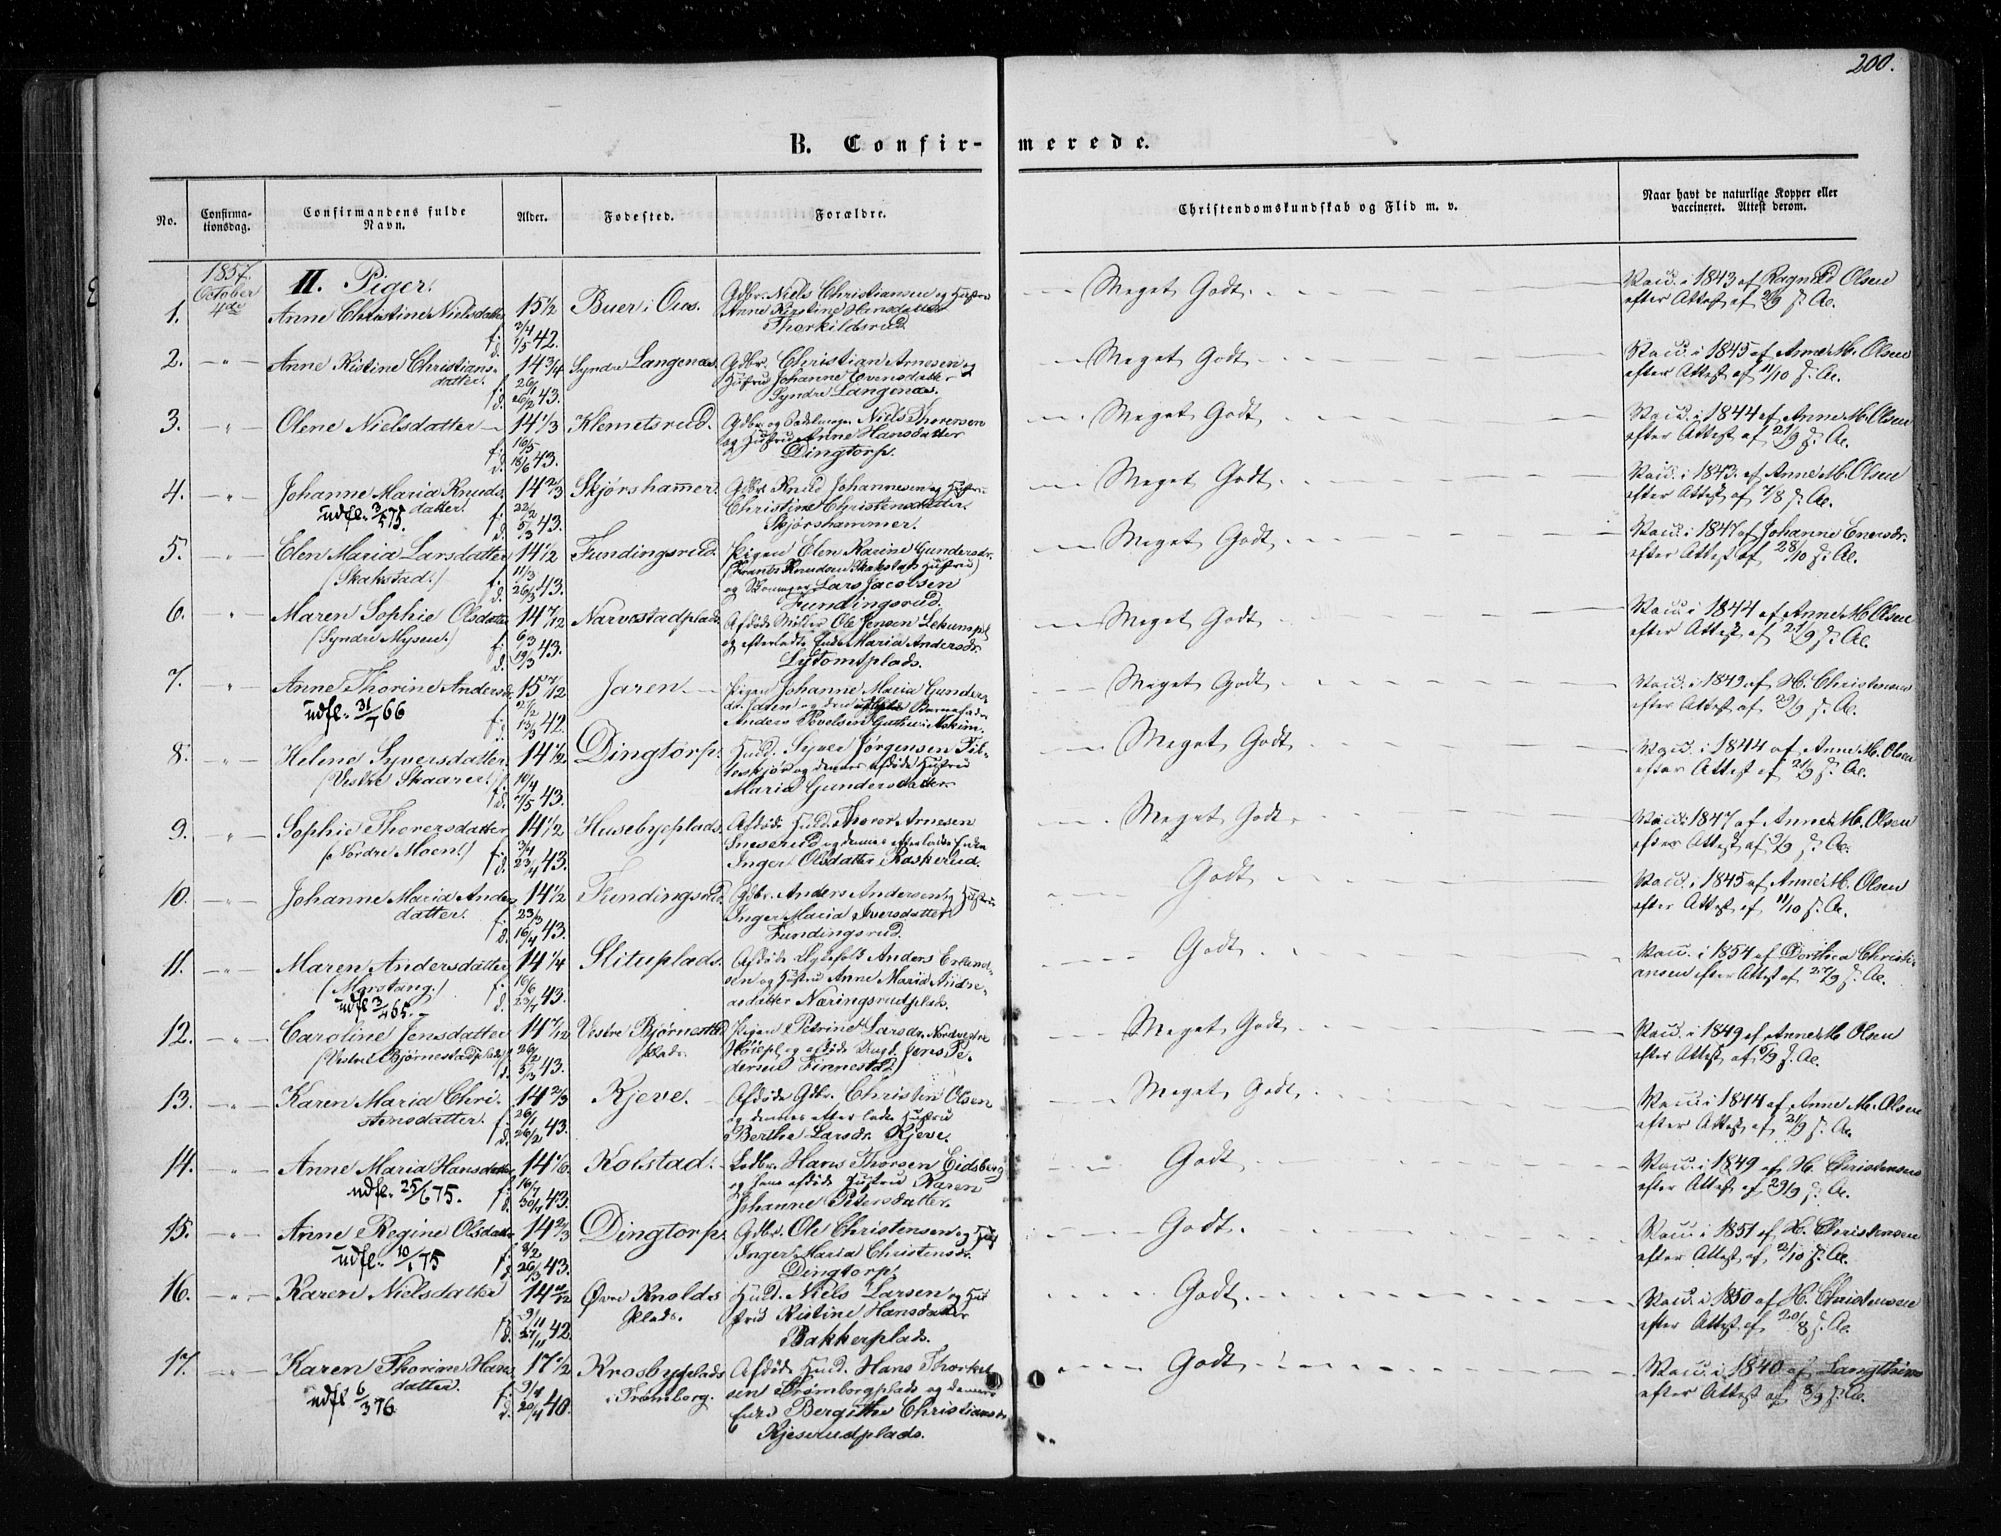 200.
B. Confirmerede.
No. Confirmationsdag. Confirmandens fulde Navn. Alder. Fødested. Forældre. Christendomskundskab og Flid m. v. Naar havt de naturlige Kopper eller vaccineret. Attest derom.
1857. October 4de
II. Piger.
1. Anne Christine Nielsdatter 15 1/2 f. 3/4 d. 1/5 42. Buer i Ous. Gdbr. Niels Christiansen og Hustru Anne Kirstine Hansdatter Thorkildsrud. Meget Godt. Vacc. i 1843 af Ragnild Olsen efter Attest af 2/9 s. A.
2. Anne Kistine Christiansdatter. 14 3/4 f. 26/1 d. 26/2 43. Syndre Langenæs. Gdbr. Christian Arnesen og Hustru Johanne Evensdatter Syndre Langenæs. Meget Godt Vacc. i 1845 af Anne M. Olsen efter Attest af 11/10 s. A.
3. Olene Nielsdatter 14 1/3 f. 16/5 d. 18/6 43. Klemetsrud. Gdbr. og Sadelmager Niels Thorersen og Hustru Anne Hansdatter Dingtorp. Meget Godt Vacc. i 1844 af Anne M. Olsen efter Attest af 21/9 s. A.
4. Johanne Maria Knudsdatter. udfl. 3/5 75. 14 2/3 f. 22/2 d. 5/3 43. Skjørshammer. Gdbr. Knud Johannesen og Hustru Christine Christensdatter. Skjørshammer. Meget Godt. Vacc. i 1843. af Anne M. Olsen efter Attest af 7/8 s. A.
5. Elen Maria Larsdatter (Skakstad.) 14 1/2 f. 11/3 d. 26/3 43. Fundingsrud. Pigen Elen Karine Gundersdr. (Frants Knudsen Skakstads Hustru) og Lars Jacobsen Fundingsrud. Meget Godt. Vacc. i 1847 af Johanne Enersdr. efter Attest af 28/10 s. A.
6. Maren Sophie Olsdatter (Syndre Mysen.) 14 7/12 f. 6/3 d. 19/3 43. Narvestadplads. Afdøde Møller Ole Jensen Lekumpl. og efterladte Enke Maria Andersdr. Lytomtplads. Meget Godt Vacc. i 1844 af Anne M. Olsen efter Attest af 27/9 s. A.
7. Anne Thorine Andersdr. udfl. 31/7 66 15 7/12 f. 2/2 d. 13/3 42. Jaren. Pigen Johanne Maria Gundersdr. Jaren og den Barnefader Anders Povelsen Guthu i Askim. Meget Godt Vacc. i 1849 af H. Christensen efter Attest af 29/9 s. A.
8. Helene Syversdatter (Vestre Skaarer.) 14 1/2 f. 10/4 d. 7/5 43. Dingtorp. Huusmd. Syver Jørgensen og dennes afdøde Hustru Maria Gundersdatter. Meget Godt. Vacc. i 1844 af Anne M. Olsen efter Attest af 21/9 s. A.
9. Sophie Thorersdatter (Nordre Moen.) 14 1/2 f. 3/4 d. 23/4 43. Husebyeplads. Afdøde Huusmd. Thorer Arnesen og dennes efterladte Enke Inger Olsdatter Raskerud. Meget Godt. Vacc. 1847 af Anne M. Olsen efter Attest af 2/9 s. A.
10. Johanne Maria Andersdatter. 14 1/2 f. 23/3 d. 16/4 43. Fundingsrud. Gdbr. Anders Andersen og Hustru Inger Maria Iversdatter Fundingsrud. Godt Vacc. i 1845 af Anne M. Olsen efter Attest af 11/10 s. A.
11. Maren Andersdatter (Morstang.) udfl 3/4 65. 14 1/4 f. 16/6 d. 23/7 43. Slituplads. Afdøde Anders Erlandsen og Hustru Anne Maria Andreasdatter Næringsrudplads. Godt Vacc. i 1854 af Dorthea Christiansen efter Attest af 27/9 s. A.
12. Caroline Jensdatter (Vestre Bjørnestadplads) 14 7/12 f. 26/2 d. 5/3 43. Vestre Bjørnestad plads. Pigen Petrine Larsdr. Nordvestre og afdøde Ungk. Jens Pedersen Finnestad. Meget Godt. Vacc. i 1849 af Anne M. Olsen efter Attest af 5/9 s. A.
13. Karen Maria Christensdatter. 14 2/3 f. 26/1 d. 26/2 43. Kjeve. Afdøde Gdbr. Christen Olsen og dennes efterladte Hustru Berthe Larsdr. Kjeve. Meget Godt. Vacc. i 1844 af Anne M. Olsen efter Attest af 21/9 s. A.
14. Anne Maria Hansdatter udfl. 25/6 75. 14 1/6 f. 16/7 d. 30/7 43. Kolstad. Hans Thorsen Eidsberg og hans afdøde Hustru Karen Johanne Pedersdatter. Godt Vacc. i 1849 af H. Christensen efter Attest af 29/9 s. A.
15. Anne Regine Olsdatter udfl. 10/1 75 14 2/3 f. 3/2 d. 26/3 43. Dingtorp. Gdbr. Ole Christensen og Hust. Inger Maria Christensdr. Dingtorp. Godt. Vacc. i 1851 af H. Christensen efter Attest af 2/10 s. A.
16. Karen Nielsdatter 14 10/12 f. 9/11 d. 27/11 42. Øvre Knolds Plads. Huusmd. Niels Larsen og Hustrud Kistine Hansdatter Bakkerplads. Godt Vacc. i 1850 af H. Christensen efter Attest af 20/8 s. A.
17. Karen Thorine Hansdatter. udfl 6/3 76 17 1/2 f. 9/4 d. 20/4 40. Krosbyplads i Trømborg. Afdøde Huusmd. Hans Thorkelsen Trømborgplads og dennes Enke Bergithe Christiansdr. Kjeserudplads. Godt Vacc. i 1840 af Langthim efter Attest af 3/9 s. A.